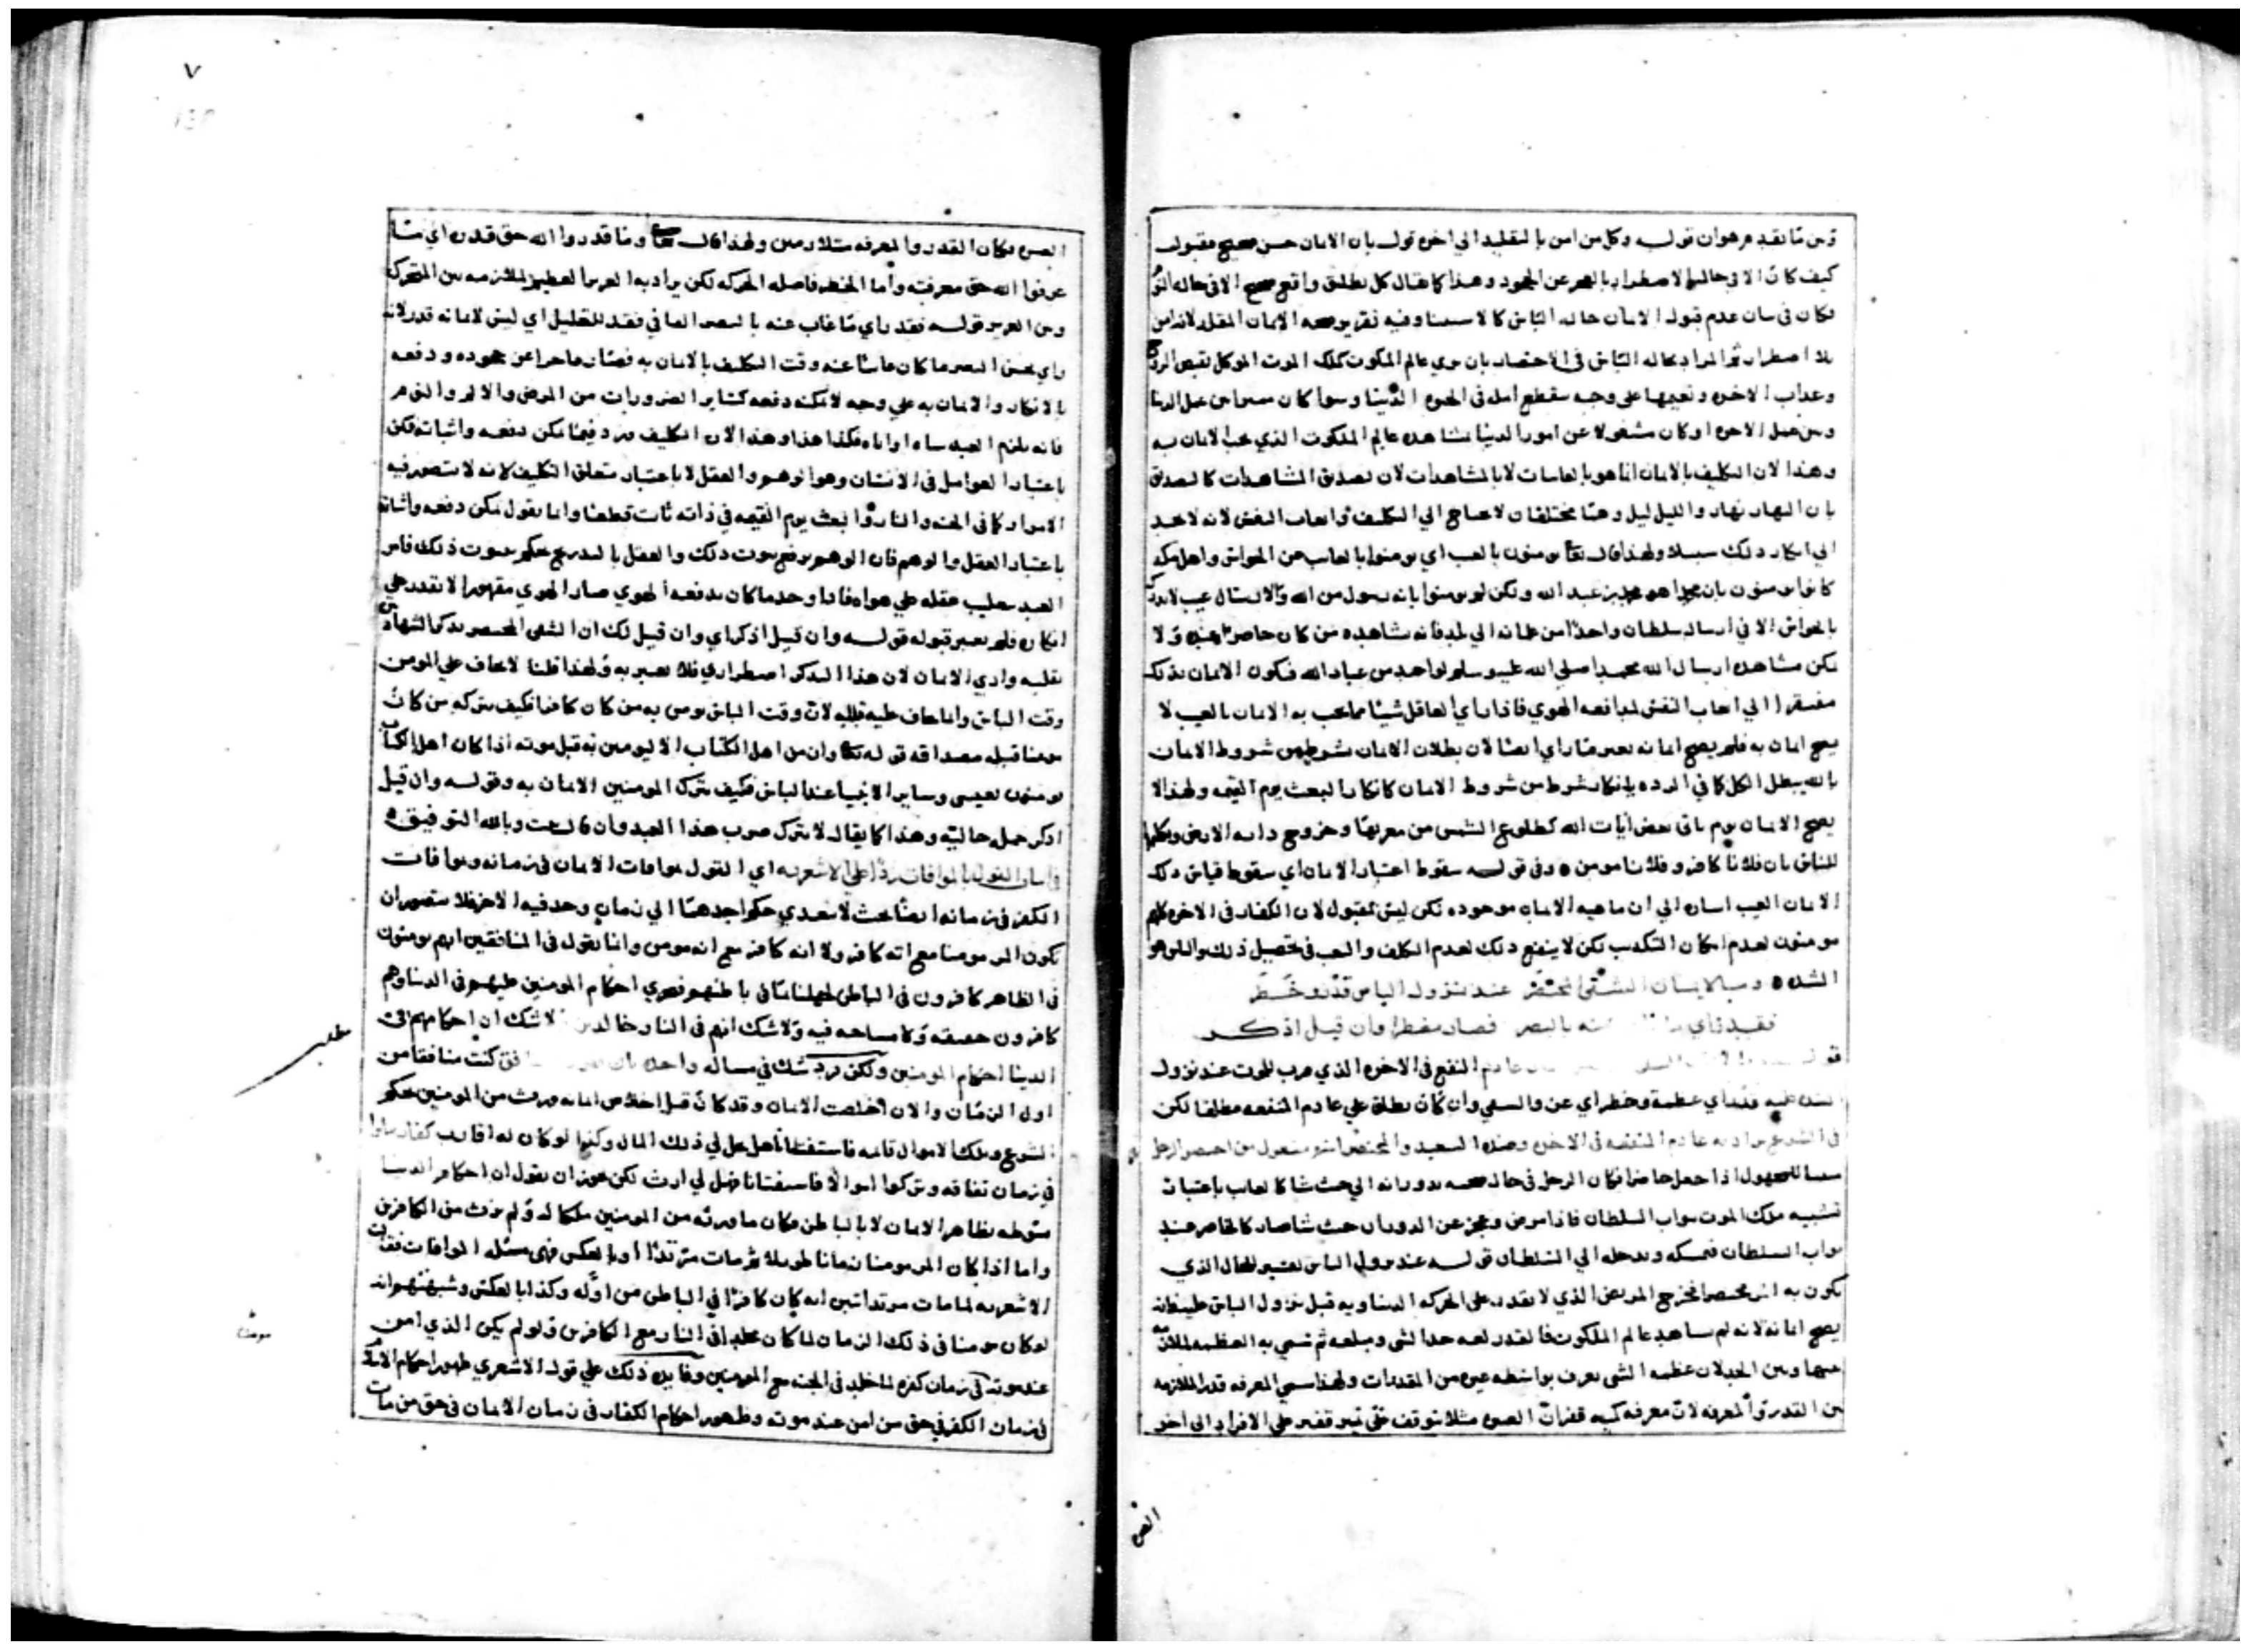 ومن ما تقدم هو ان قوله وكل من امن بالتقليد الي اخره قول بان الامان حسن صحيح مقبول
كيف كان الا في حاله الاضطرار بالعجز عن الجحود وهذا كما يقال كل طلاق واقع صحيح الا في حاله
فكان في بيان عدم قبول الامان حاله الباس كالاستثنا وفيه تقرير صحه الايمان المقلد لانه امن
بلا اضطرار ثم المراد بحاله الباس في الاحتضار بان يري عالم الملكوت كملك الموت الموكل بقبض الروح
وعذاب الاخره ونعيمها علي وجه ينقطع امله في الحيوه الدنيا وسوا كان
او كان مشغولا عن امور الدنيا بمشاهده عالم الملكوت الذي يجب الامان به
وهذا لان التكليف بالامان انما هو بالغايبات لا بالمشاهدات لان تصديق المشاهدات كالتصديق
بان النهار نهار والليل ليل وهما مختلفان لا يحتاج الي التكليف واتعاب النفس لانه لا يجد
الي انكار ذلك سبيلا ولهذا قال تعا يومنون بالغيب اي يومنوا بالغايب عن الحواس واهل مكه
كانوا يومنون بان محمدا هو محمد بن عبد الله ولكن لم يومنوا بانه رسول من الله والارسال غيب لا يدرك
بالحواس الا في ارسال سلطان واحدا من غلمانه الي بلد فانه شاهده من كان حاضرا عنده ولا
يمكن مشاهده ارسال الله محمدا صلي الله عليه وسلم لواحد من عباد الله فيكون الامان بذلك
مفتقرا الي اتعاب النفس لمدافعه الهوي فاذا راي العاقل شيئا مما يجب به الامان بالغيب لا
يصح امانه به فلم يصح امانه بغير ما راي ايضا لان بطلان الامان بشرط من شروط الامان
بالله يبطل الكل كما في الرده بانكار شرط من شروط الامان كانكار البعث يوم القيمه ولهذا لا
يصح الامان يوم ياتي بعض ايات الله كطلوع الشمس من مغربها وخروج دابه الارض وتكلمها
للناس بان فلانا كافر وفلانا مومن وفي قوله سقوط اعتبار الامان اي سقوط قياس ذلك
الامان الغيب اشاره الي ان ماهيه الامان موجوده لكن ليس بمقبول لان الكفار في الاخره كلهم
مومنون لعدم امكان التكذيب لكن لا ينفع ذلك لعدم الكلف والتعب في تحصيل ذلك والباس هو
الشده وبالايمان الشقي المحتضر عند نزول الباس قدر وخطر
فقد راي ما عنه بالبصر فصار مضطرا وان قيل اذكر
عادم النفع في الاخره الذي قرب للموت عند نزول
الشده عليه قدر اي عظمة وخطر اي عز والشقي وان كان يطلق علي عادم المنفعه مطلقا لكن
في الشرع يراد به عادم المنفعه في الاخره وضده السعيد والمحتضر اسم مفعول من احتضر الرجل
مبنيا للمجهول اذا جعل حاضرا فكان الرجل في حال صحته بدورانه الي حيث شا كالغايب باعتبار
تشبيه ملك الموت ببواب السلطان فاذا مرض وعجز عن الدوران حيث شا صار كالحاضر عند
بواب السلطان فيمسكه ويدخله الي السلطان قوله عند نزول الباس تفسير للحال الذي
يكون به اسم محتضرا فخرج المريض الذي لا يقدر علي الحركه الدنياويه قبل نزول الباس عليه فانه
يصح امانه لانه لم يشاهد عالم الملكوت فالقدر لغه حد الشي ومبلغه ثم سمي به العظمه للملازمه
بينها وبين الحد لان عظمه الشي تعرف بواسطه غيره من المقدمات ولهذا سمي المعرفه قدرا للملازمه
بين القدر والمعرفه لان معرفه كميه قفزان الصبره مثلا يتوقف حتي تميز قفيز علي الافراد الي اخر
الصبر
٧
الصبره فكان القدر والمعرفه متلازمين ولهذا قال تعا وما قدروا الله حق قدره اي ما
عرفوا الله حق معرفته واما الخطر فاصله الحركه لكن يراد به العز والتعظيم للملازمه بين المتحرك
وبين العز قوله فقد راي ما غاب عنه بالبصر الفا في فقد للتعليل اي ليس لايمانه قدر لانه
راي بحس البصر ما كان غايبا عنه وقت التكليف بالامان به فصار عاجزا عن جحوده ودفعه
بالانكار والامان به علي وجه لا يمكنه دفعه كساير الضروريات من المرض والالم والنوم
فانه يلزم العبد شاه او اباه فكذا هذا وهذا لان التكليف ورد فيما يمكن دفعه واثباته لكن
باعتبار العوامل في الانسان وهو الوهم والعقل لا باعتبار متعلق التكليف لانه لا يتصور فيه
الامران كما في الجنه والنار والبعث يوم القيمه في ذاته ثابت قطعا وانما يقول يمكن دفعه واثباته
باعتبار العقل والوهم فان الوهم يدفع ثبوت ذلك والعقل بالتدريج يحكم بثبوت ذلك فامر
العبد بتغليب عقله علي هواه فاذا وجد ما كان يدفعه الهوي صار الهوي مقهورا لا يقدر علي
انكاره فلم يعتبر قبوله قوله وان قيل اذكر اي وان قيل لك ان الشقي المحتضر يذكر الشهادتين
بقلبه وادي الامان لان هذا التذكر اضطراري فلا يعتبر به ولهذا قلنا لا يخاف علي المومن
وقت الباس وانما يخاف عليه قبله لان وقت الباس يومن به من كان كافرا فكيف يتركه من كان
مومنا قبله مصداقه قوله تعا وان من اهل الكتاب الا ليومنن به قبل موته اذا كان اهل الكتاب
يومنون بعيسي وساير الانبيا عند الباس فكيف يترك المومنين الامان به وقوله وان قيل
اذكر جمل حاليه وهذا كما يقال لا يترك ضرب هذا العبد وان قال تبت وبالله التوفيق
في بيان القول بالموافات ردا علي الاشعريه اي القول بموافات الامان في زمانه وموافات
الكفر في زمانه ايضا بحيث لا يتعدي حكم احدهما الي زمان وجد فيه الاخر فلا يتصور ان
يكون المر مومنا مع انه كافر ولا انه كافر مع انه مومن وانما يقول في المنافقين انهم يومنون
في الظاهر كافرون في الباطن لجهلنا ما في باطنهم فنجري احكام المومنين عليهم في الدنيا وهم
كافرون حقيقه وكلامنا فيه ولا شك انهم في النار خالدين لا شك ان احكامهم في
الدنيا احكام المومنين ولكن ورد شك في مساله واحده كنت منافقا من
اول الزمان والان اخلصت الامان وقد كان قبل اخلاص امانه ورث من المومنين بحكم
الشرع وملك الاموال قايمه فاستفتانا هل حل لي ذلك المال وكذا لو كان له اقارب كفار ماتوا
في زمان نفاقه وتركوا اموالا فاستفتانا هل لي ارث لكن يجوز ان يقول ان احكام الدنيا
منوطه بظاهر الامان لا بالباطن فكان ما ورثه من المومنين ملكا له ولم يرث من الكافرين
واما اذا كان المر مومنا زمانا طويلا ثم مات مرتدا او بالعكس فهي مسئله الموافات فقالت
الاشعريه لما مات مرتدا تبين انه كان كافرا في الباطن من اوله وكذا بالعكس وشبهتهم انه
لو كان مومنا في ذلك الزمان لما كان مخلدا في النار مع الكافرين ولو لم يكن الذي امن
عند موته في زمان كفره لما خلد في الجنه مع المومنين وفايده ذلك علي قول الاشعري ظهور احكام الامان
في زمان الكفر في حق من امن عند موته وظهور احكام الكفار في زمان الامان في حق من مات
مطلب
مومنا